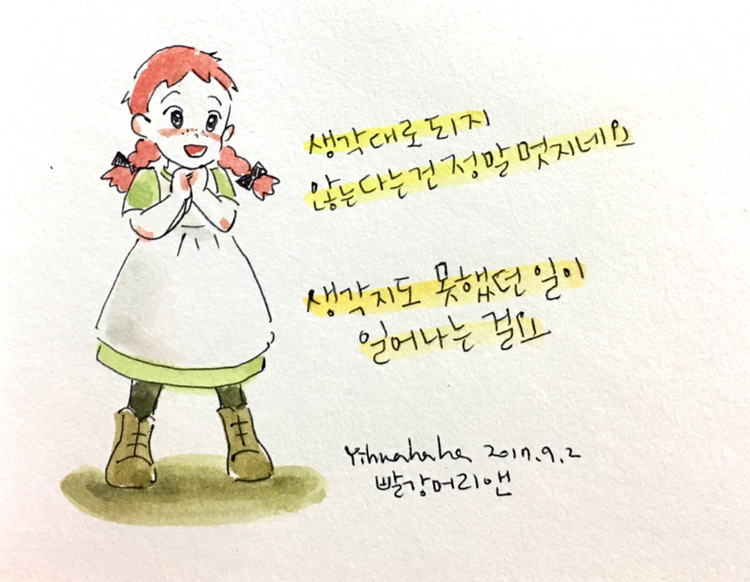 생각대로 되지
않는다는건 정말 멋지네요
생각지도 못했던 일이
일어나는 걸요
Yihnahaha 2017.9.2
빨강머리앤